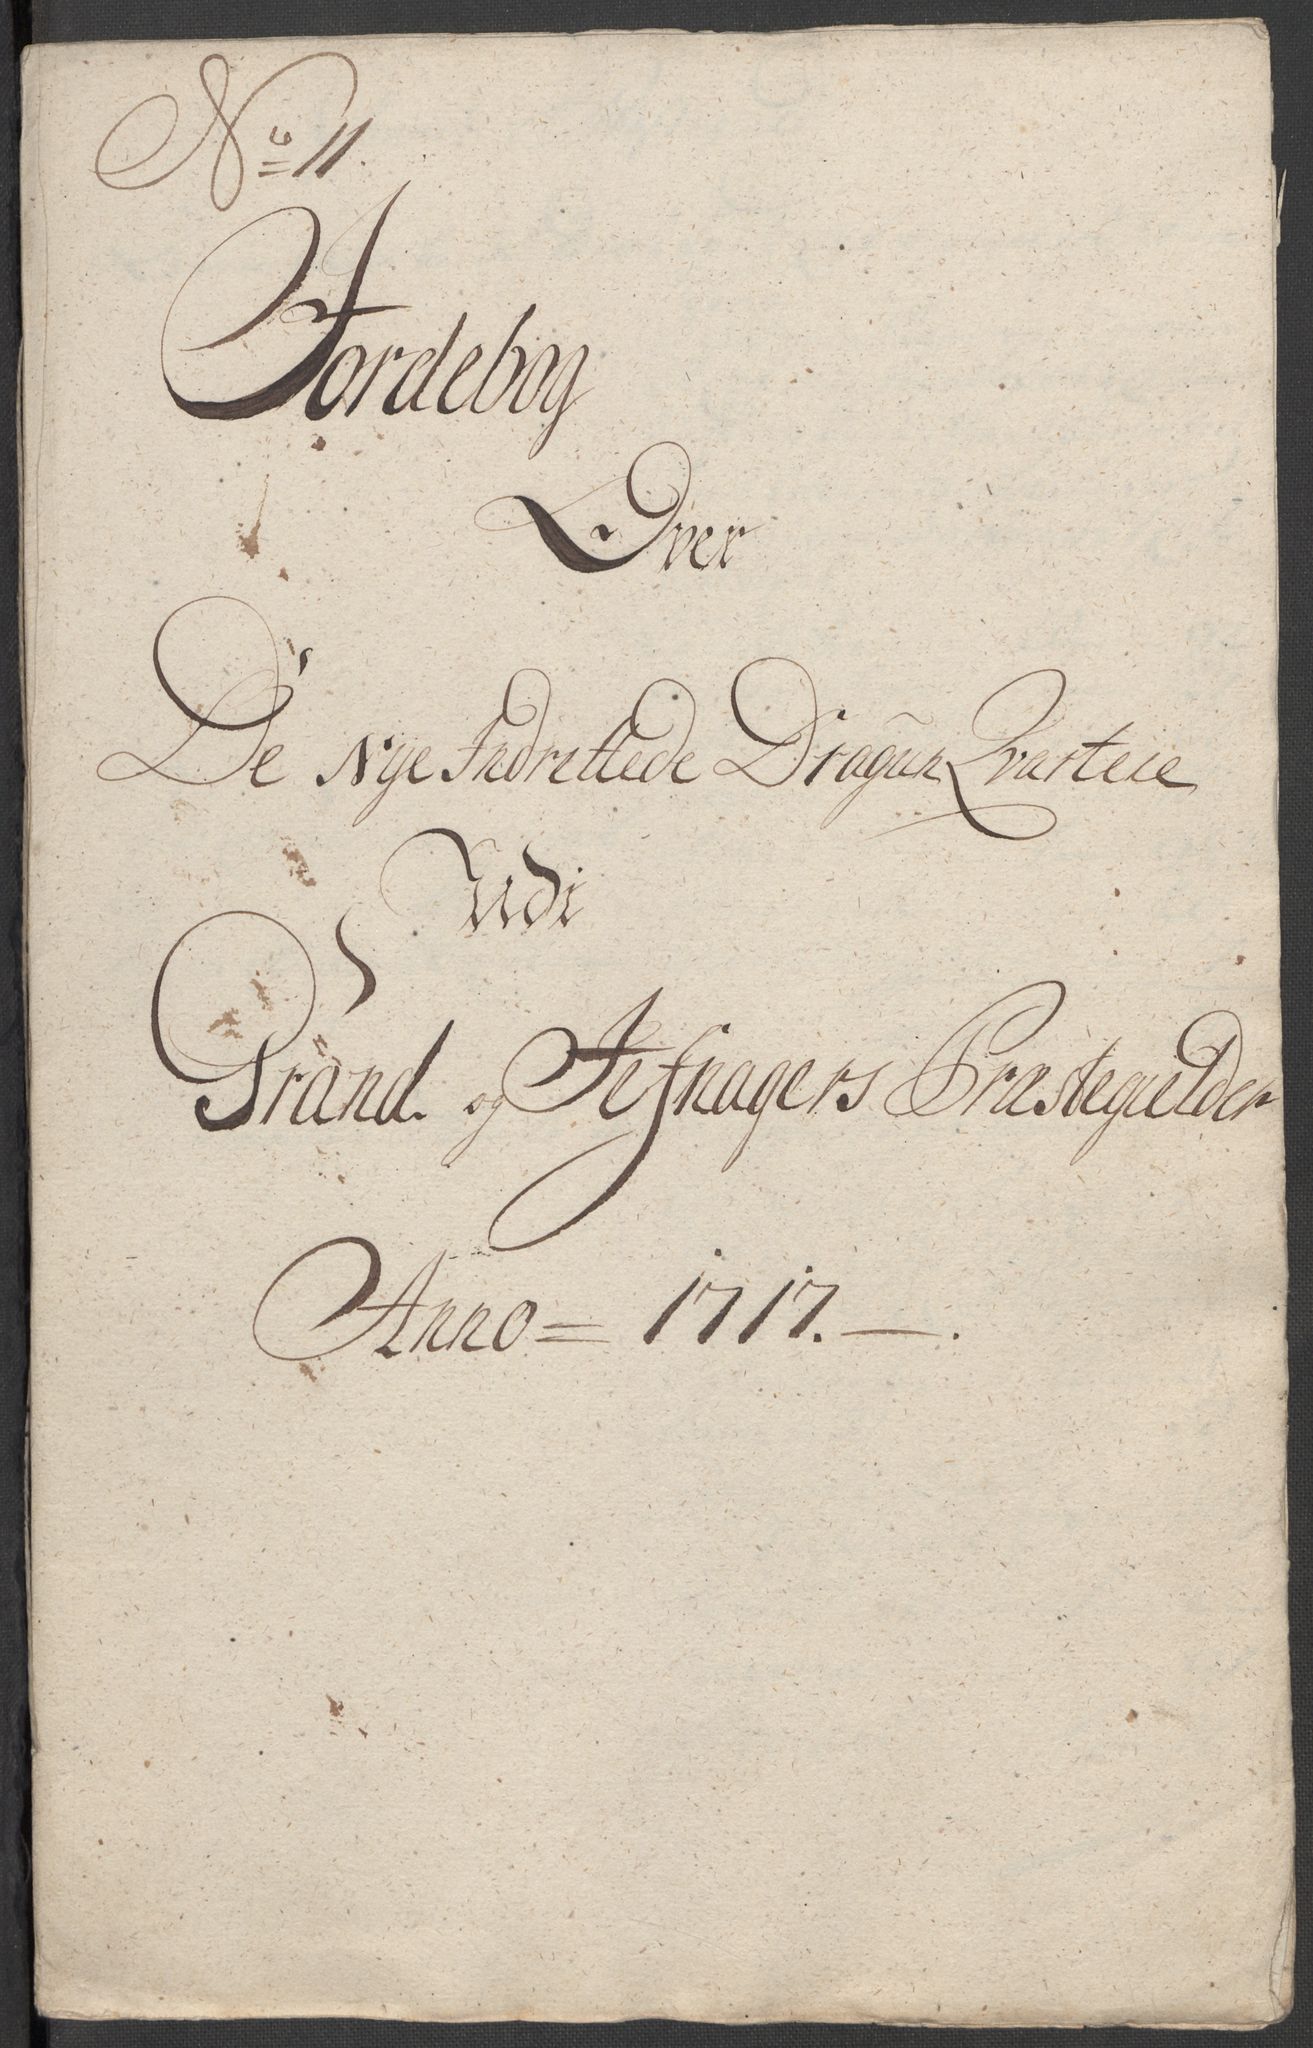 No 11.
Jordebog
Over
De Nye Indrettede Dragun Qvarteer
Udi
Grand og Jefnagers Præstegielder
Anno = 1717. — .